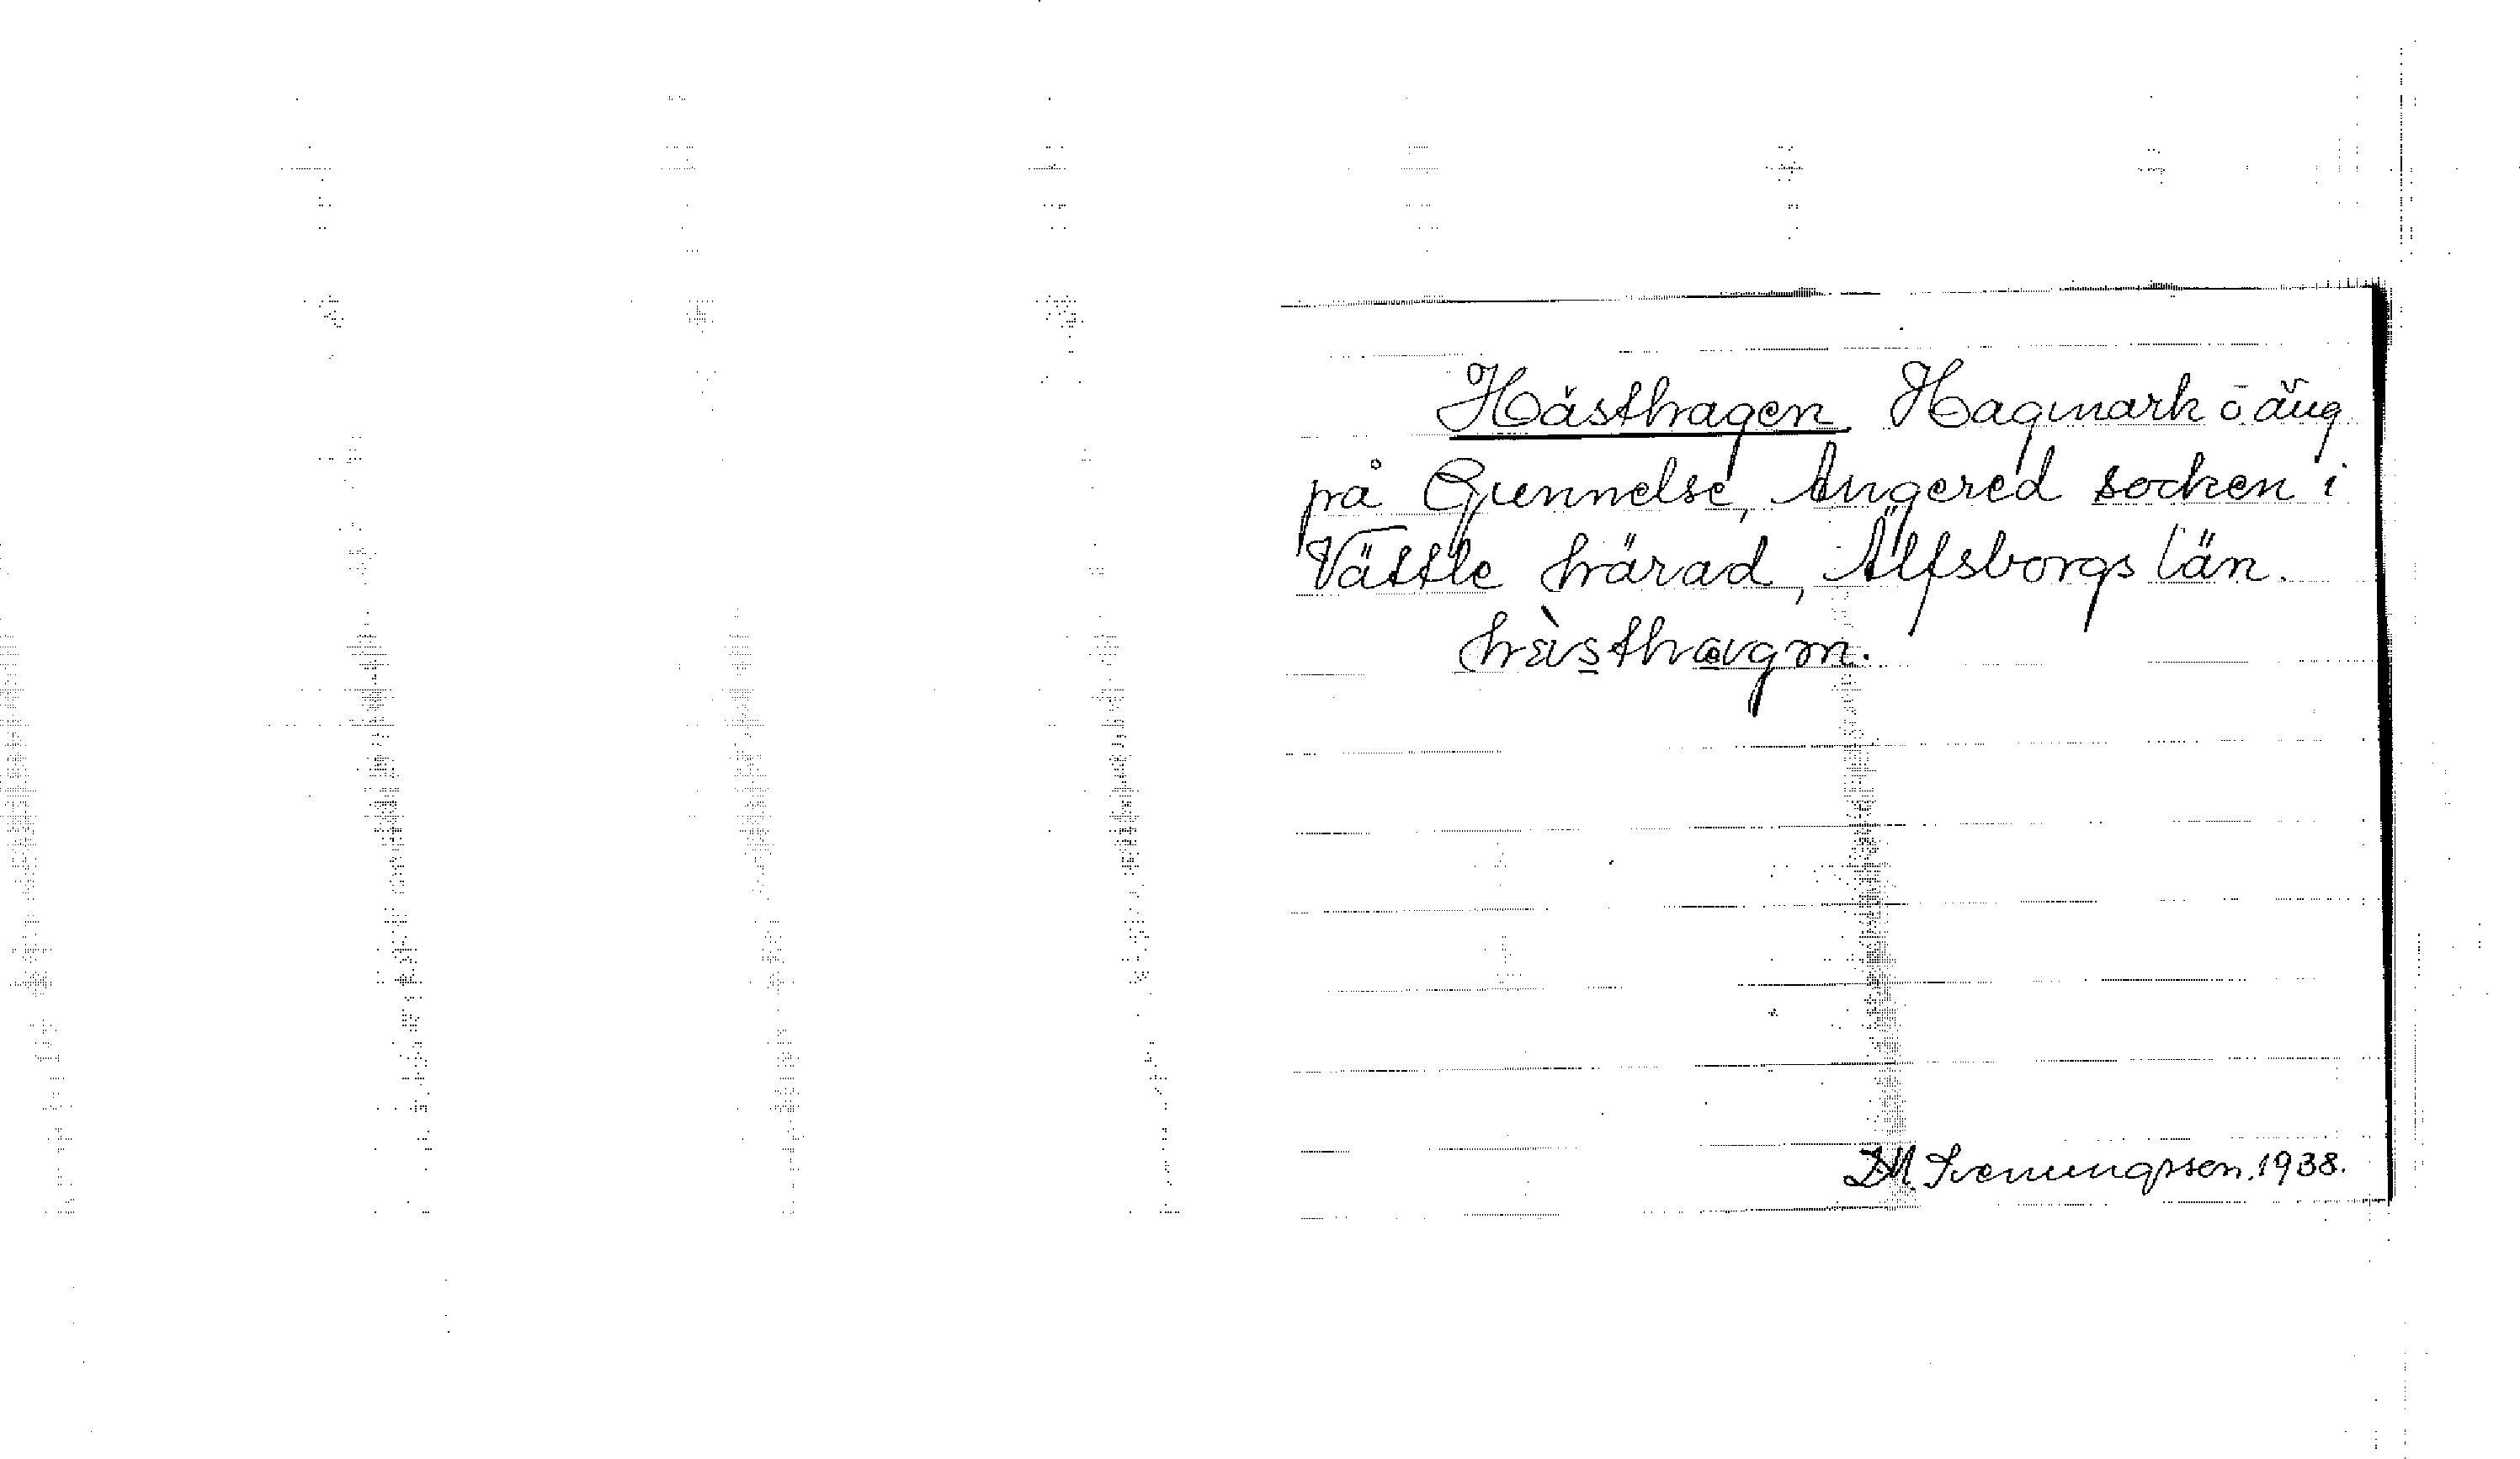 Hästhagen. Hagmark o äng
på Gunnelse, Angered socken i
Vättle härad, Älfsborgs län.
Svenungsson. 1938.